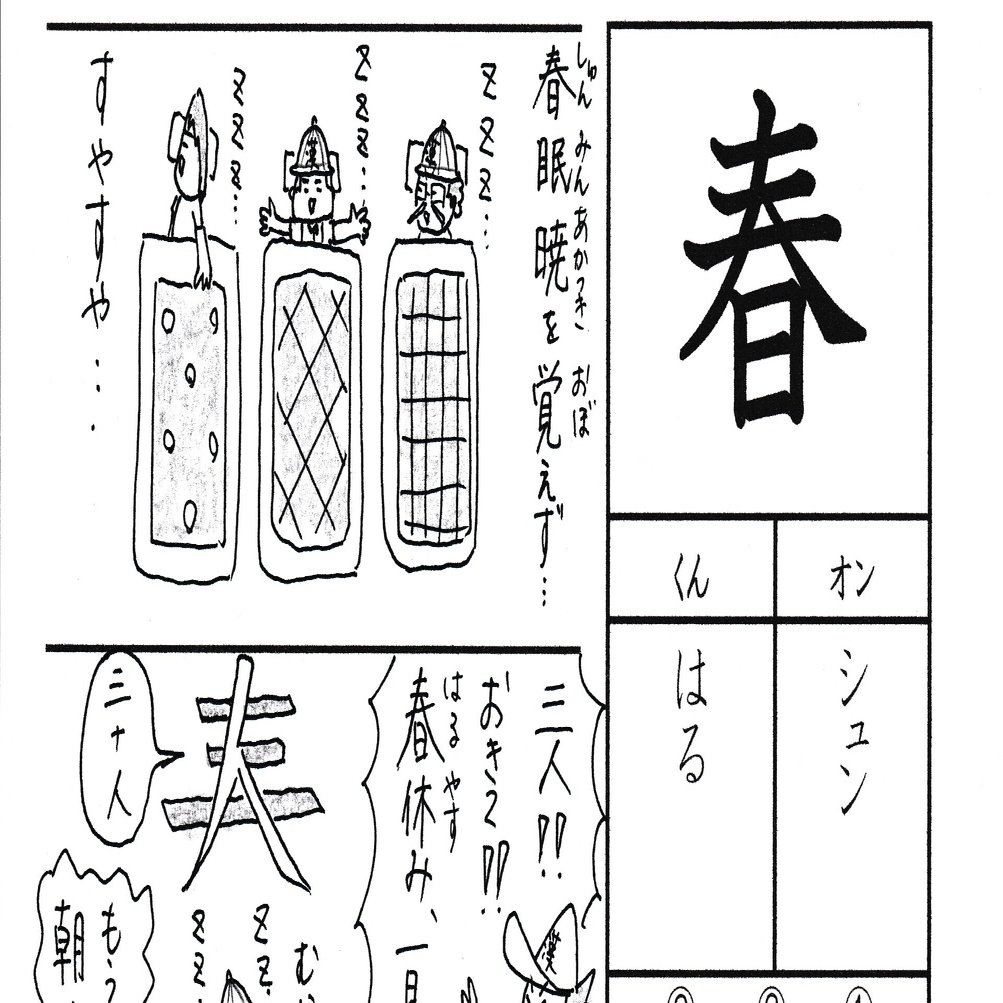 春
オン
くん
シュン
はる
春眠暁を覚えず…
しゅんみんあかつき おぼ
zzz…
zzz…
zzz…
漢
漢
すやすや…
三人!!
おきて!!
春休み、一
はるやす
三+人
zz
zz
漢
もう
朝